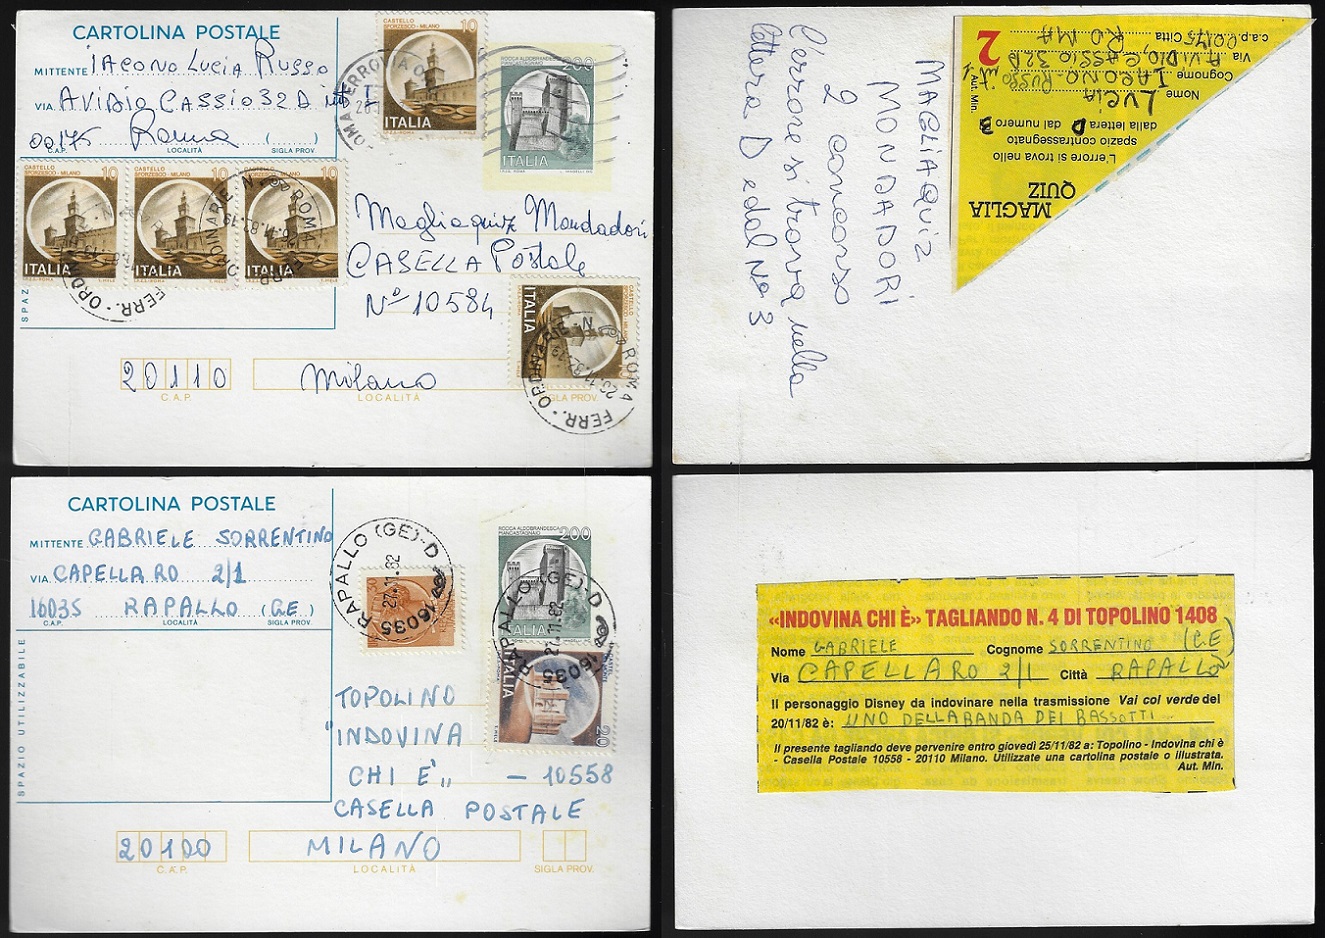 CARTOLINA POSTALE
MITTENTE IACONO LUCIA RUSSO
VIA AVIDIO CASSIO 32D int 4
00175 Roma (......)
C.A.P. LOCALITÀ SIGLA PROV.
CASTELLO SFORZESCO - MILANO 10
ITALIA
I.P.Z.S. - ROMA E. MELE
ROCCA ALDOBRANDESCA PIANCASTAGNAIO 200
ITALIA
CASTELLO SFORZESCO - MILANO 10
ITALIA
CASTELLO SFORZESCO - MILANO 10
ITALIA
CASTELLO SFORZESCO - MILANO 10
ITALIA
FERR. - ORDINARIE - N. ROMA
SPAZ
Magliaquiz Mondadori
CASELLA Postale
N° 10584
CASTELLO SFORZESCO - MILANO
ITALIA
FERR. - ORDINARIE - N. ROMA
20110 Milano
C.A.P. LOCALITÀ SIGLA PROV.
MAGLIAQUIZ
MONDADORI
2 concorso
l'errore si trova nella
lettera D e dal No 3
MAGLIA
QUIZ
L'errore si trova nello
spazio contrassegnato
dalla lettera D dal numero 3
Nome Lucia
Cognome IACONO Russo
Via AVIDIO CASSIO 32D int. 4
c.a.p. 00175 Città ROMA
2
Aut. Min.
CARTOLINA POSTALE
MITTENTE GABRIELE SORRENTINO
VIA CAPELLARO 2/1
16035 RAPALLO (GE)
C.A.P. LOCALITÀ SIGLA PROV.
SPAZIO UTILIZZABILE
16035 RAPALLO (GE) - D
27.11.82
ROCCA ALDOBRANDESCA PIANCASTAGNAIO 200
ITALIA
16035 RAPALLO (GE) - D
27.11.82
ITALIA
20
TOPOLINO
"INDOVINA
CHI È" - 10558
CASELLA POSTALE
20100 MILANO
C.A.P. LOCALITÀ SIGLA PROV.
«INDOVINA CHI È» TAGLIANDO N. 4 DI TOPOLINO 1408
Nome GABRIELE Cognome SORRENTINO (GE)
Via CAPELLARO 2/1 Città RAPALLO
Il personaggio Disney da indovinare nella trasmissione Vai col verde del
20/11/82 è: UNO DELLA BANDA DEI BASSOTTI
Il presente tagliando deve pervenire entro giovedì 25/11/82 a: Topolino - Indovina chi è
- Casella Postale 10558 - 20110 Milano. Utilizzate una cartolina postale o illustrata.
Aut. Min.